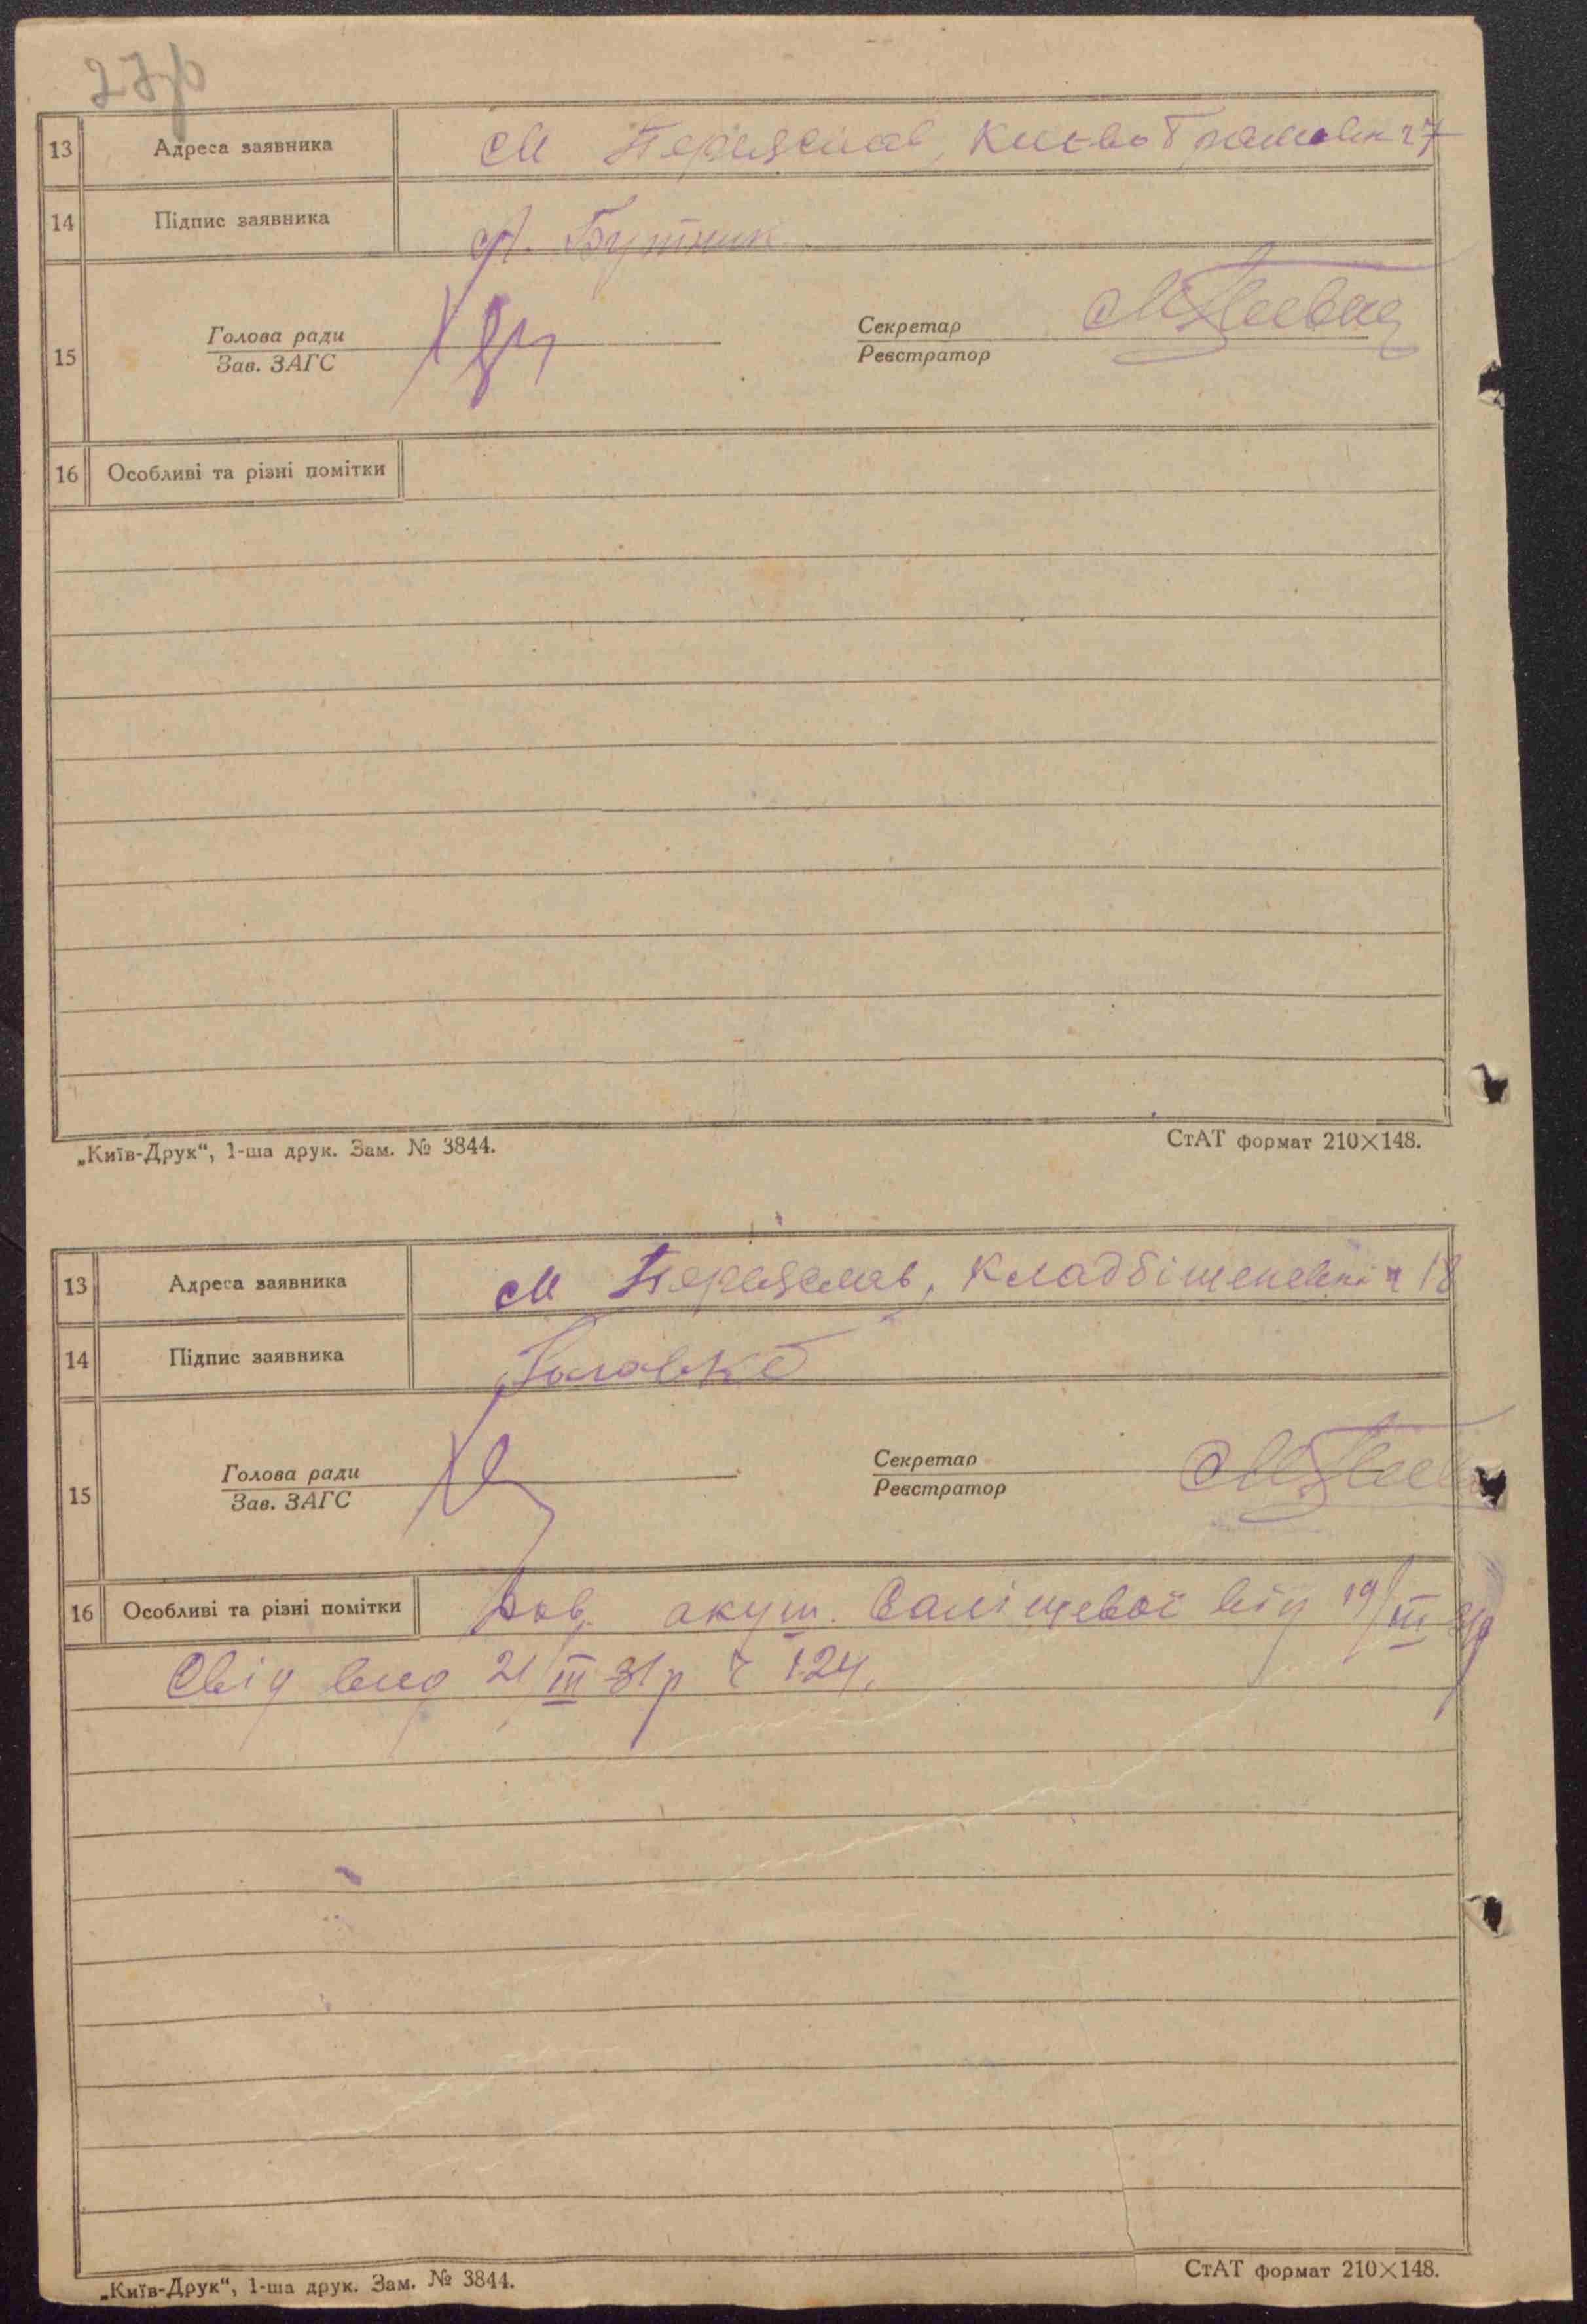 13 Адреса заявника м Переяслав, Києво
14 Підпис заявника А. Бутник
Голова ради
Зав. ЗАГС
15
Секретар
Реєстратор
16 Особливі та різні помітки
„Київ-Друк“, 1-ша друк. Зам. № 3844. СтАТ формат 210×148.
13 Адреса заявника м Переяслав, 18
14 Підпис заявника
Голова ради
Зав. ЗАГС
15
Секретар
Реєстратор
16 Особливі та різні помітки Дов. акуш. від 19/III 31р
Свід вид 21/III 31р ч 124.
„Київ-Друк“, 1-ша друк. Зам. № 3844. СтАТ формат 210×148.